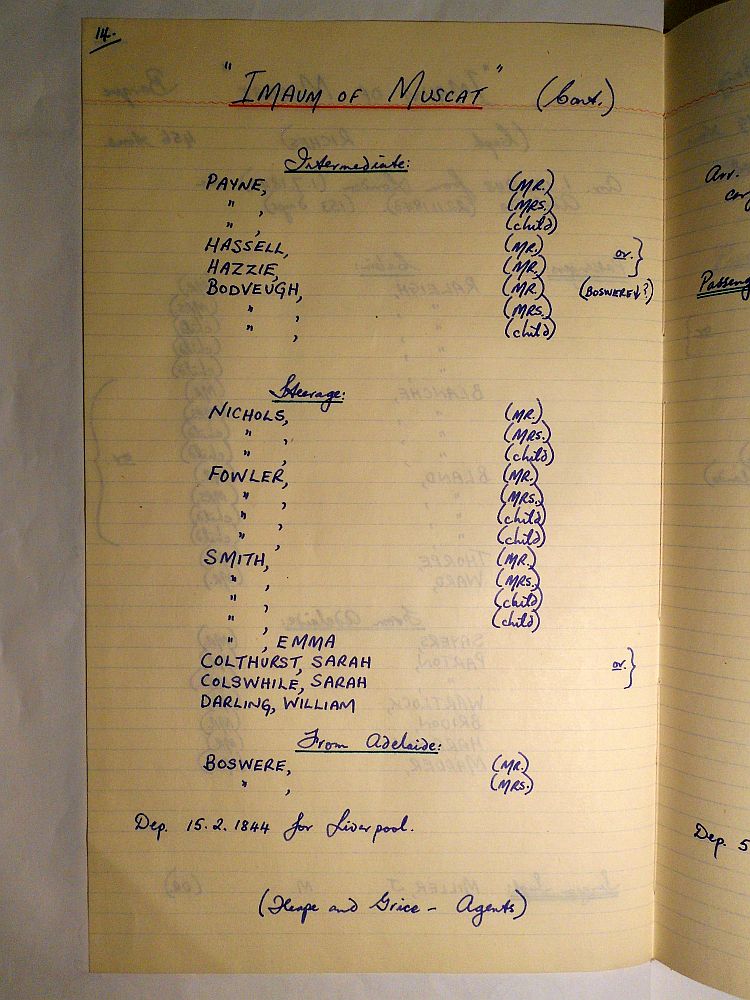 14.
"IMAUM OF MUSCAT" (Cont.)
Intermediate:
PAYNE, (MR.)
" , (MRS.)
" , (child)
HASSELL, (MR.) or. }
HAZZIE, (MR.)
BODVEUGH, (MR.) (BOSWERE↓?)
" , (MRS.)
" , (child)
Steerage:
NICHOLS, (MR.)
" , (MRS.)
" , (child)
FOWLER, (MR.)
" , (MRS.)
" , (child)
" , (child)
SMITH, (MR.)
" , (MRS.)
" , (child)
" , (child)
" , EMMA
COLTHURST, SARAH or. }
COLSWHILE, SARAH
DARLING, WILLIAM
From Adelaide:
BOSWERE, (MR.)
" , (MRS.)
Dep. 15.2.1844 for Liverpool.
(Heape and Grice - Agents)
Arr.
Passeng
Dep. 5